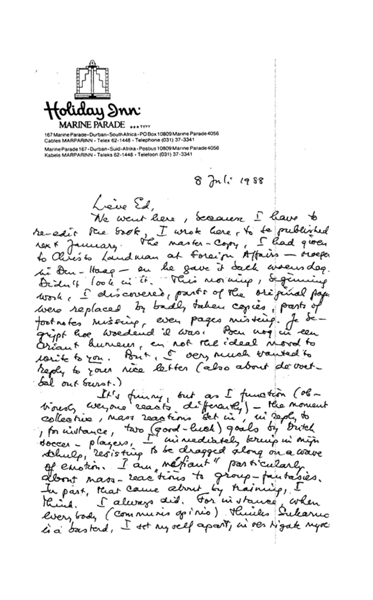 Holiday Inn
MARINE PARADE
167 Marine Parade-Durban-South Africa-PO Box 10809 Marine Parade 4056
Cables MARPARINN - Telex 62-1448 - Telephone (031) 37-3341
Marine Parade 167-Durban-Suid-Afrika-Posbus 10809 Marine Parade 4056
Kabels MARPARINN - Teleks 62-1448 - Telefoon (031) 37-3341
8 Juli 1988
Lieve Ed,
We went here, because I have to
re-edit the book, I wrote here, to be published
next January. The master-copy, I had given
to Christo Landman at Foreign Affairs —
in Den-Haag — en he gave it back woensdag.
Didn't look in it. This morning, beginning
work, I discovered, parts of the original pages
were replaced by badly taken copies, parts of
footnotes missing, even pages missing. Je be-
grijpt hoe woedend ik was. Ben nog in een
humeur, en not the ideal mood to
write to you. But, I very much wanted to
reply to your nice letter (also about de voet-
bal out burst.)
It's funny, but as I function (ob-
viously everyone reacts differently) — the moment
collective, mass reactions set in, in reply to
, for instance, two (good-luck) goals by Dutch
soccer-players, I immediately terug in mijn
schulp, resisting to be dragged along on a wave
of emotion. I am "méfiant" particularly
about mass-reactions to group-fantasies.
In part, that came about by training, I
think. I always did. For instance, when
everybody (communis opinio) thinks Sukarno
is a bastard, I set myself apart,